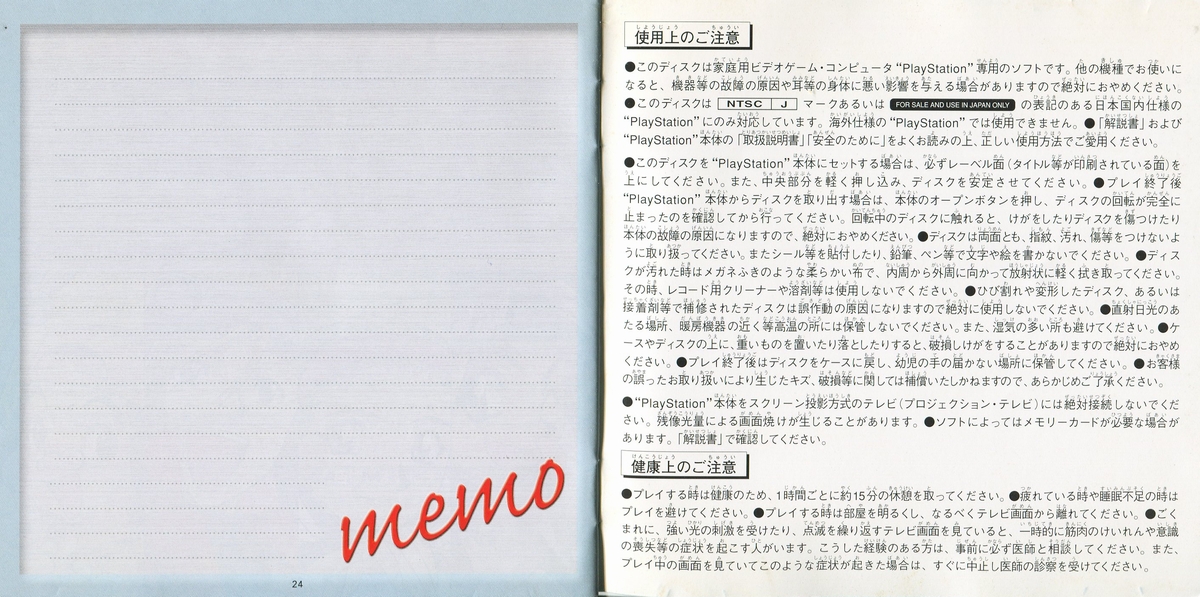 memo
24
使用上のご注意
●このディスクは家庭用ビデオゲーム・コンピュータ“PlayStation”専用のソフトです。他の機種でお使いに
なると、機器等の故障の原因や耳等の身体に悪い影響を与える場合がありますので絶対におやめください。
●このディスクは NTSC J マークあるいは FOR SALE AND USE IN JAPAN ONLY の表記のある日本国内仕様の
“PlayStation”にのみ対応しています。海外仕様の“PlayStation”では使用できません。●「解説書」および
“PlayStation”本体の「取扱説明書」「安全のために」をよくお読みの上、正しい使用方法でご愛用ください。
●このディスクを“PlayStation”本体にセットする場合は、必ずレーベル面（タイトル等が印刷されている面）を
上にしてください。また、中央部分を軽く押し込み、ディスクを安定させてください。●プレイ終了後
“PlayStation”本体からディスクを取り出す場合は、本体のオープンボタンを押し、ディスクの回転が完全に
止まったのを確認してから行ってください。回転中のディスクに触れると、けがをしたりディスクを傷つけたり
本体の故障の原因になりますので、絶対におやめください。●ディスクは両面とも、指紋、汚れ、傷等をつけないよ
うに取り扱ってください。またシール等を貼付したり、鉛筆、ペン等で文字や絵を書かないでください。●ディス
クが汚れた時はメガネふきのような柔らかい布で、内周から外周に向かって放射状に軽く拭き取ってください。
その時、レコード用クリーナーや溶剤等は使用しないでください。●ひび割れや変形したディスク、あるいは
接着剤等で補修されたディスクは誤作動の原因になりますので絶対に使用しないでください。●直射日光のあ
たる場所、暖房機器の近く等高温の所には保管しないでください。また、湿気の多い所も避けてください。●ケ
ースやディスクの上に、重いものを置いたり落としたりすると、破損しけがをすることがありますので絶対におやめ
ください。●プレイ終了後はディスクをケースに戻し、幼児の手の届かない場所に保管してください。●お客様
の誤ったお取り扱いにより生じたキズ、破損等に関しては補償いたしかねますので、あらかじめご了承ください。
●“PlayStation”本体をスクリーン投影方式のテレビ（プロジェクション・テレビ）には絶対接続しないでくだ
さい。残像光量による画面焼けが生じることがあります。●ソフトによってはメモリーカードが必要な場合が
あります。「解説書」で確認してください。
健康上のご注意
●プレイする時は健康のため、1時間ごとに約15分の休憩を取ってください。●疲れている時や睡眠不足の時は
プレイを避けてください。●プレイする時は部屋を明るくし、なるべくテレビ画面から離れてください。●ごく
まれに、強い光の刺激を受けたり、点滅を繰り返すテレビ画面を見ていると、一時的に筋肉のけいれんや意識
の喪失等の症状を起こす人がいます。こうした経験のある方は、事前に必ず医師と相談してください。また、
プレイ中の画面を見ていてこのような症状が起きた場合は、すぐに中止し医師の診察を受けてください。